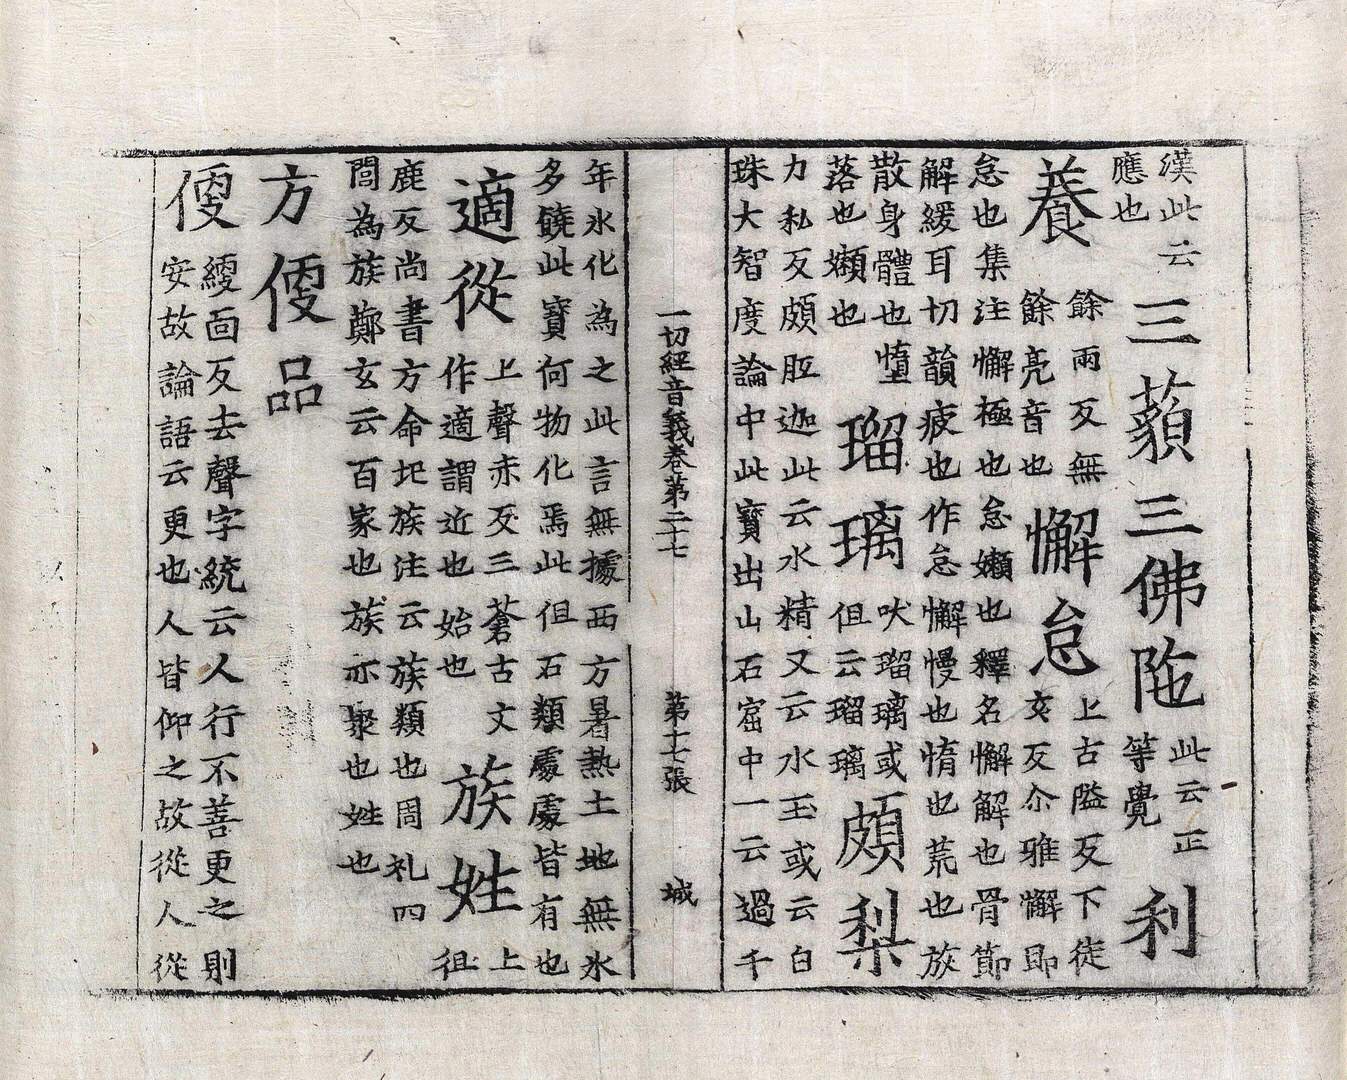 漢此云
應也
三藐三佛陁
此云正
等覺
利
養
餘兩反無
餘亮音也
懈怠
上古隘反下徒
亥反尒雅懈即
怠也集注懈極也怠嬾也釋名懈解也骨節
解緩耳切韻疲也作怠懈慢也惰也荒也放
散身體也墯
落也嬾也
瑠璃
吠瑠璃或
但云瑠璃
頗梨
力私反頗胝迦此云水精又云水玉或云白
珠大智度論中此寶出山石窟中一云過千
一切經音義卷第二十七 第十七張 城
年氷化為之此言無據西方暑熱土地無氷
多饒此寶何物化焉此但石類處處皆有也
適從
上聲赤反三蒼古文
作適謂近也始也
族姓
上
徂
鹿反尚書方命圮族注云族類也周礼四
閭為族鄭玄云百家也族亦聚也姓也
方便品
便
緶面反去聲字統云人行不善更之則
安故論語云更也人皆仰之故從人從